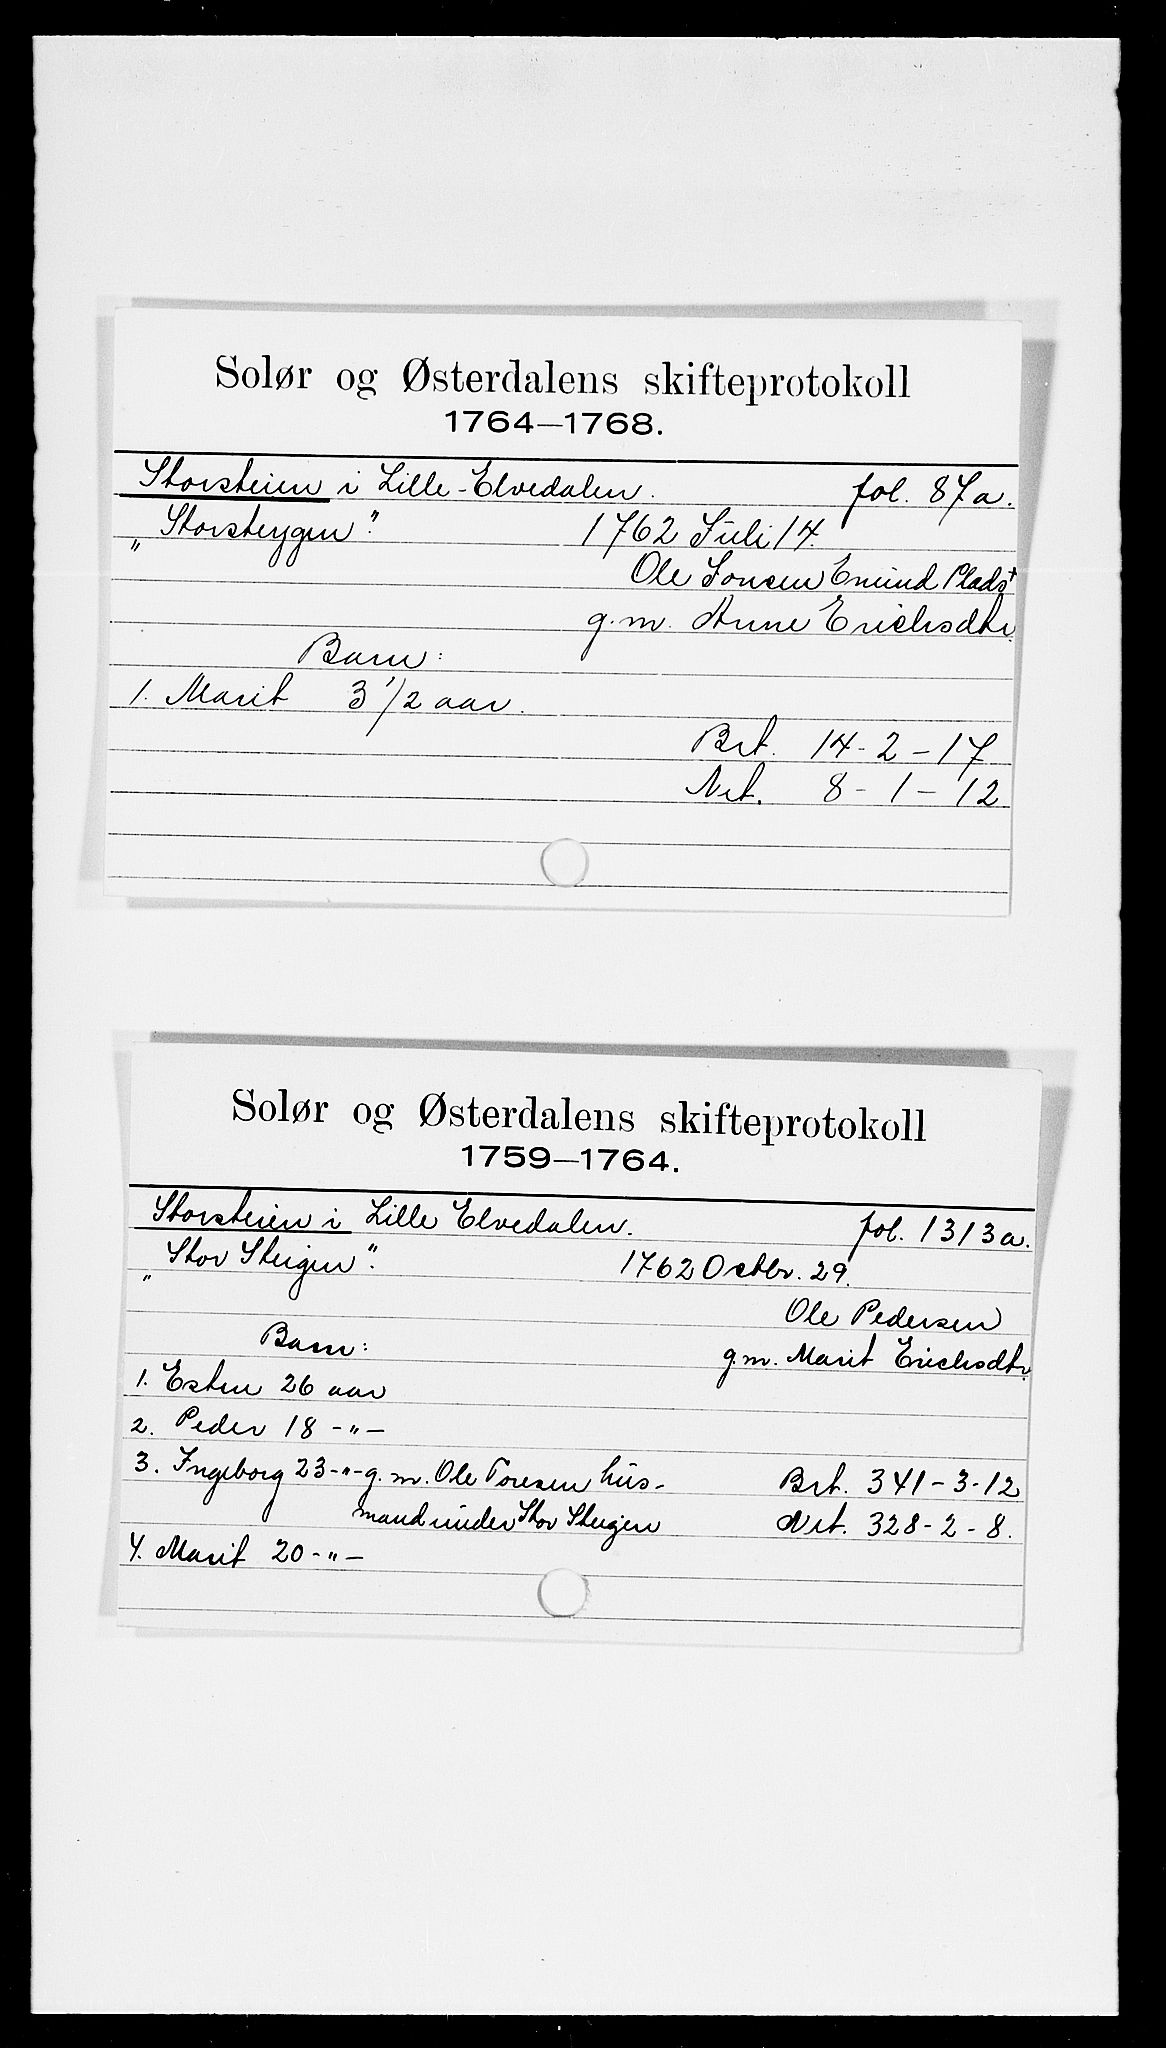 Solør og Østerdalens skifteprotokoll
1764—1768.
Storsteien i Lille-Elvedalen. fol. 87a.
„Storsteygen". 1762 Juli 14.
Ole Jonsen Enund Plads+
g.m. Anne Erichsdtr.
Barn:
1. Marit 3 1/2 aar.
Brt. 14-2-17
Nrt. 8-1-12
Solør og Østerdalens skifteprotokoll
1759—1764.
Storsteien i Lille Elvedalen. fol. 1313a.
„Stor Steigen". 1762 Octbr. 29.
Ole Pedersen
Barn: g.m. Marit Erichsdtr.
1. Esten 26 aar
2. Peder 18 -"-
3. Ingeborg 23-"-g.m. Ole Toresen hus- Brt. 341-3-12
mand under Stor Steigen Nrt. 328-2-8.
4. Marit 20-"-